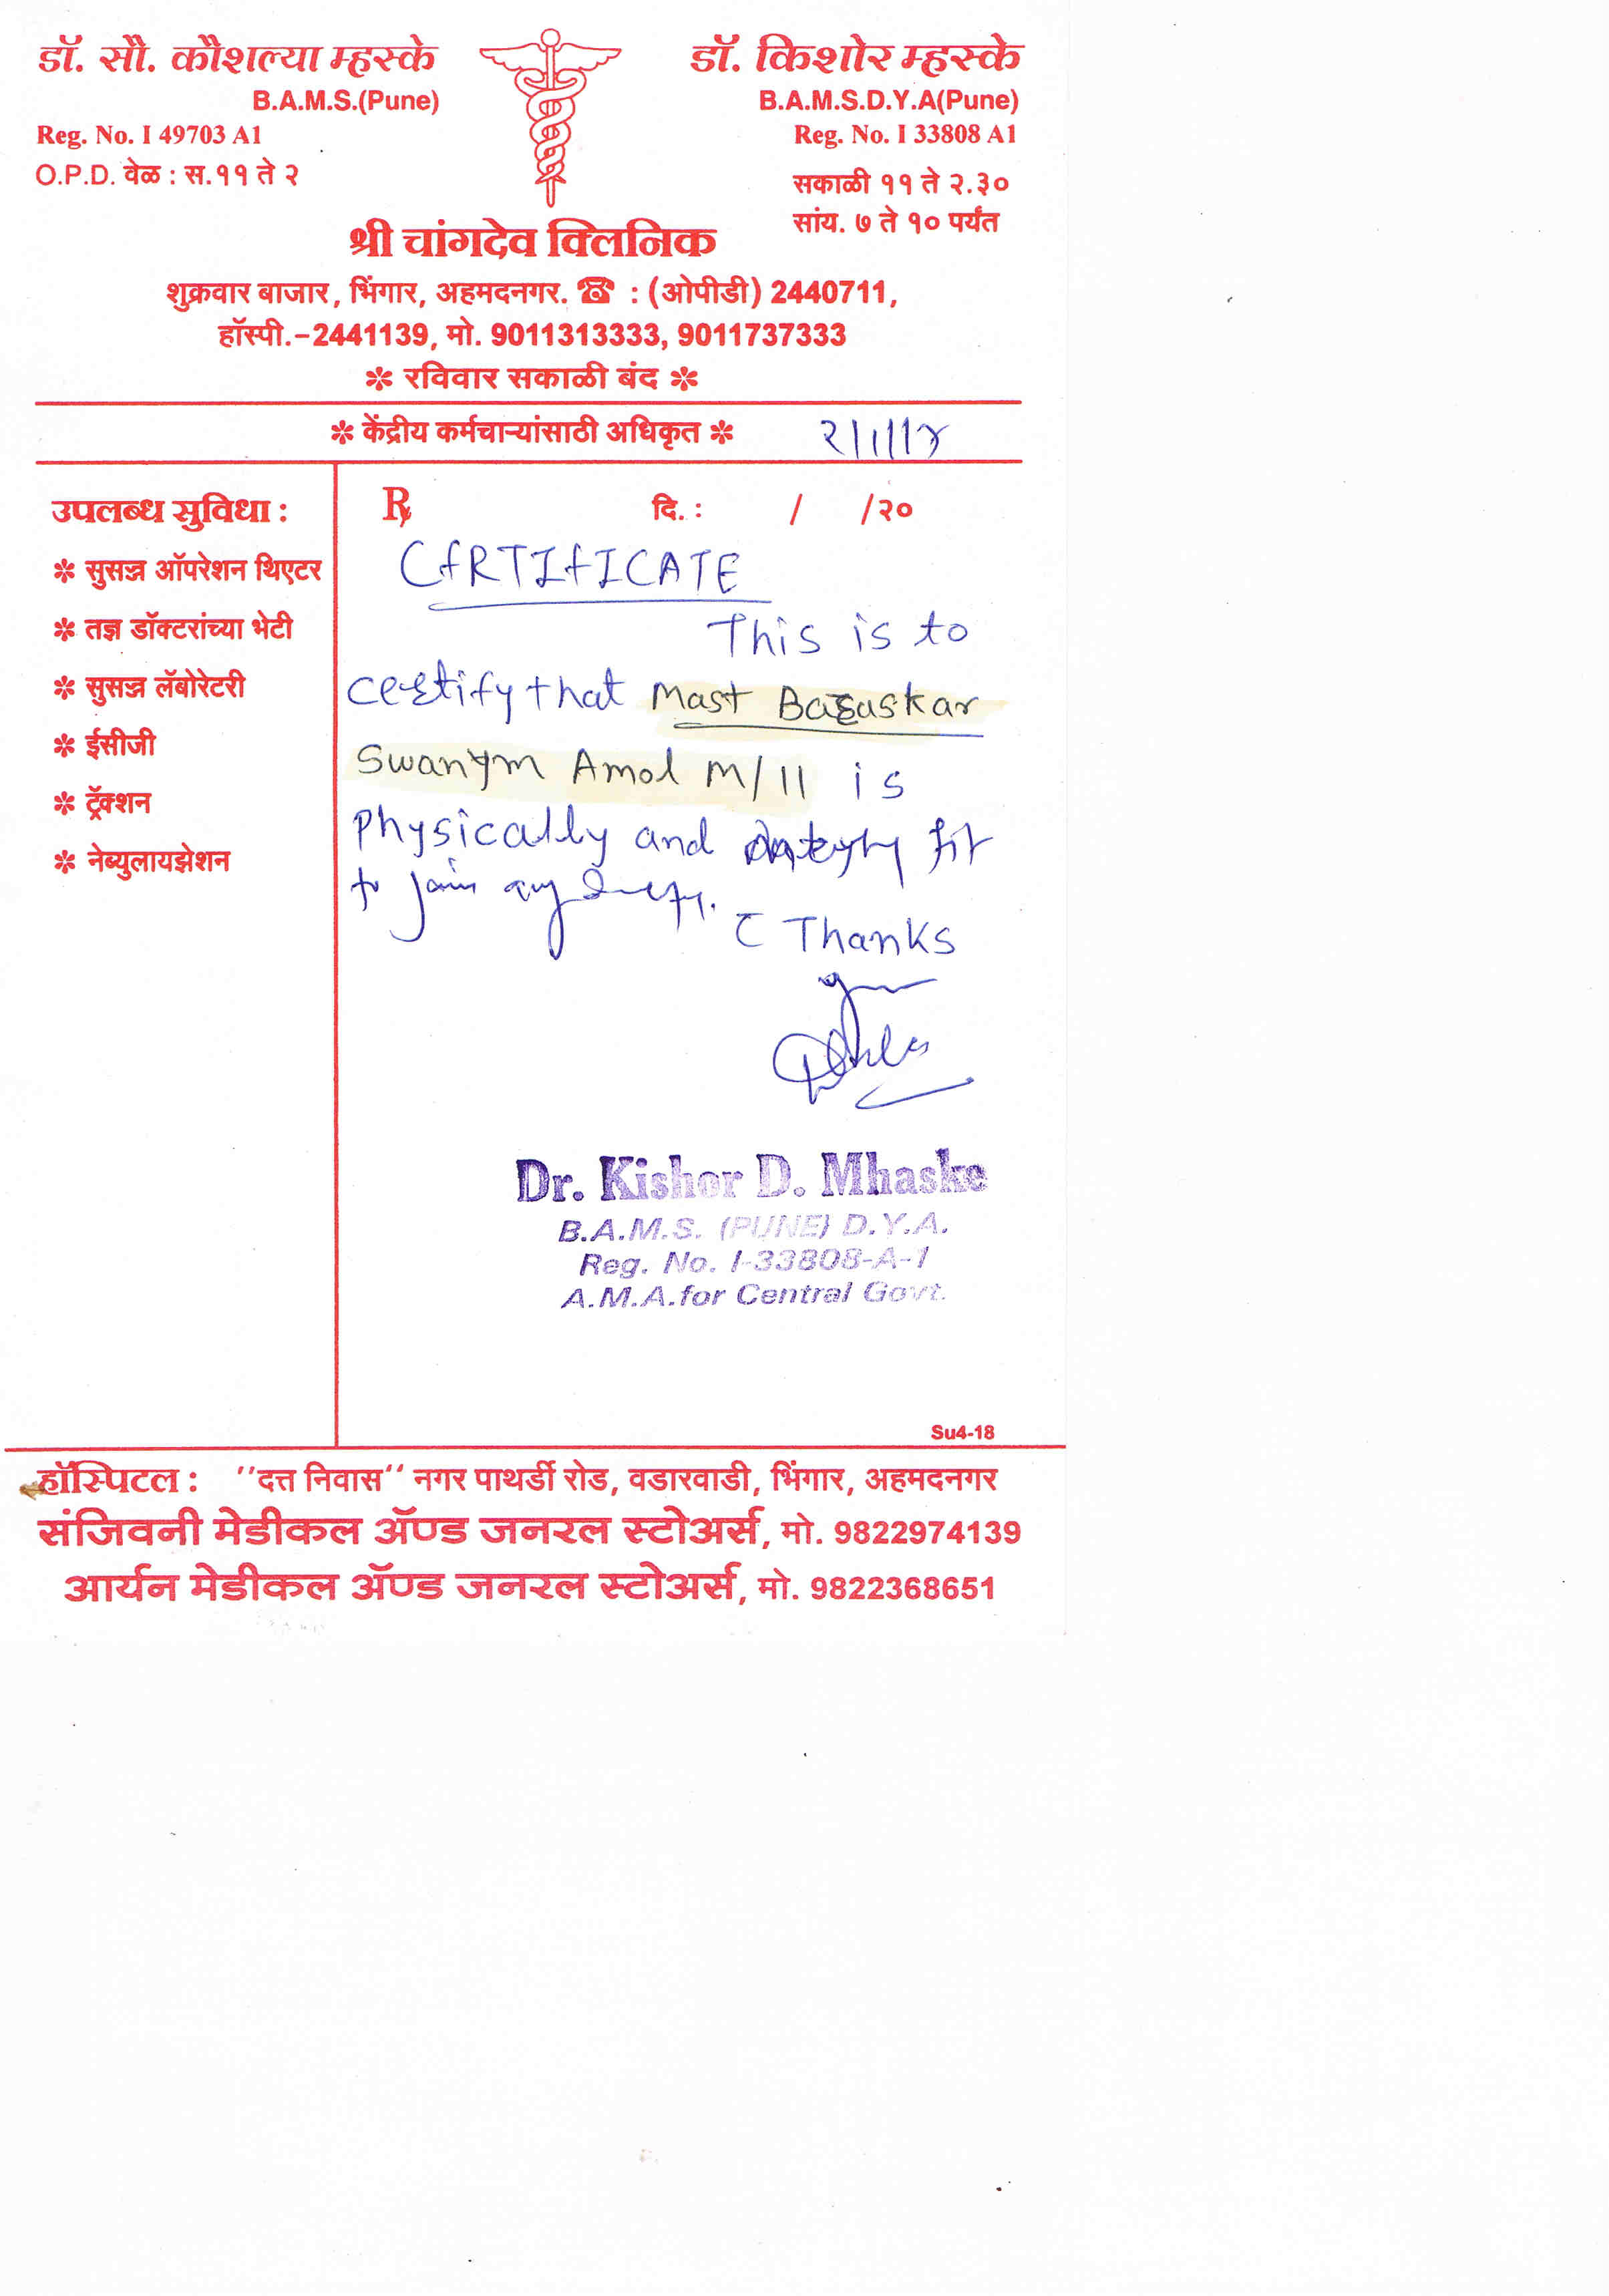 डॉ. सौ. कौशल्या म्हस्के
B.A.M.S.(Pune)
Reg. No. I 49703 A1
O.P.D. वेळ : स.११ ते २
डॉ. किशोर म्हस्के
B.A.M.S.D.Y.A(Pune)
Reg. No. I 33808 A1
सकाळी ११ ते २.३०
सांय. ७ ते १० पर्यंत
श्री चांगदेव क्लिनिक
शुक्रवार बाजार, भिंगार, अहमदनगर. ☎ : (ओपीडी) 2440711,
हॉस्पी.-2441139, मो. 9011313333, 9011737333
✽ रविवार सकाळी बंद ✽
✽ केंद्रीय कर्मचाऱ्यांसाठी अधिकृत ✽
उपलब्ध सुविधा :
✽ सुसज्ज ऑपरेशन थिएटर
✽ तज्ञ डॉक्टरांच्या भेटी
✽ सुसज्ज लॅबोरेटरी
✽ ईसीजी
✽ ट्रॅक्शन
✽ नेब्युलायझेशन
℞ दि. : / /२०
CERTIFICATE
This is to
certify that Mast
Swanym Amol M/11 is
physically and fit
to join any
C Thanks
Dr. Kishor D. Mhaske
B.A.M.S. (PUNE) D.Y.A.
Reg. No. I-33808-A-1
A.M.A.for Central Govt.
Su4-18
हॉस्पिटल : ''दत्त निवास‘‘ नगर पाथर्डी रोड, वडारवाडी, भिंगार, अहमदनगर
संजिवनी मेडीकल ॲण्ड जनरल स्टोअर्स, मो. 9822974139
आर्यन मेडीकल ॲण्ड जनरल स्टोअर्स, मो. 9822368651